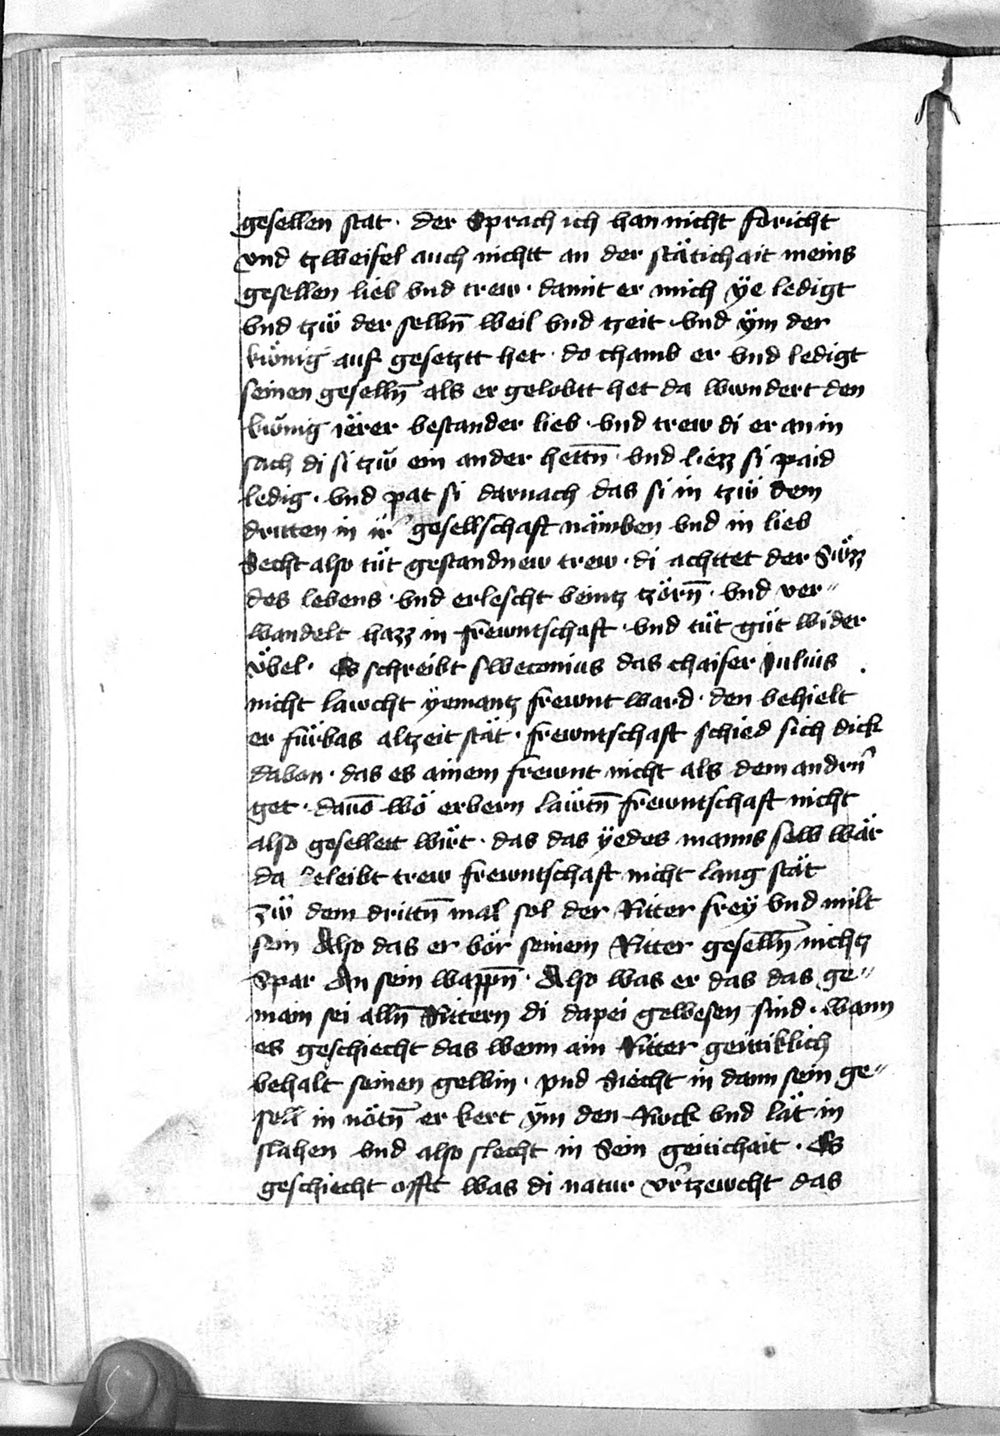 gesellen stat · der Sprach ich han nicht foricht
vnd tzweifel auch nichtt an der stätichait meins
gesellen lieb vnd trew · damit er mich ÿe ledigt
vnd tzẅ der selbn̄ weil vnd tzeit · vnd ÿm der
küönig auf gesetztt het · do chamb er vnd ledigt
seinen geselln̄ als er gelobtt het da wundert den
küönig iërer bestander lieb · vnd trew di er an in
sach di si tzẅ ein ander hettn̄ · vnd liezz si paid
ledig · vnd pat si darnach das si in tzẅ dem
dritten in ir gesellschaft nämben vnd in lieb
Secht also tüt gestandnew trew · di achttet der Süözz
des lebens · vnd erlescht beintz tzörn̄ · vnd ver〃
wandelt hazz in frewntschaft · vnd tüt güt wider
vbel · Es schreibt swetonius das chaiser Julius
nicht lawcht ÿemantz frewnt ward · den behielt
er fürbas altzeit stät · frewntschaft schied sich dick
dabon · das es ainem frewnt nicht als dem andrn̄
get · dauō wö erbern läwtn̄ frewntschaft nicht
also gesellett wirt · das das ÿedes manns selb wär
da beleibt trew frewntschaft nicht lang stät
Zẅ dem drittn̄ mal sol der Ritter freÿ vnd milt
sein Also das er vör seinem Ritter geselln̄ nichtz
Spar An sein wappn̄ · Also was er das das ge〃
main sei alln̄ Rittern di dapei gewesen sind · wann
es geschiecht das wenn ain Ritter geitiklich
behalt seinen gewin · vnd siecht in dann sein ge〃
sell in nötn̄ er kert ÿm den Rock vnd lät in
slahen vnd also slecht in Sein geitichait · Es
geschiecht offtt was di natur vr̄tzewcht das